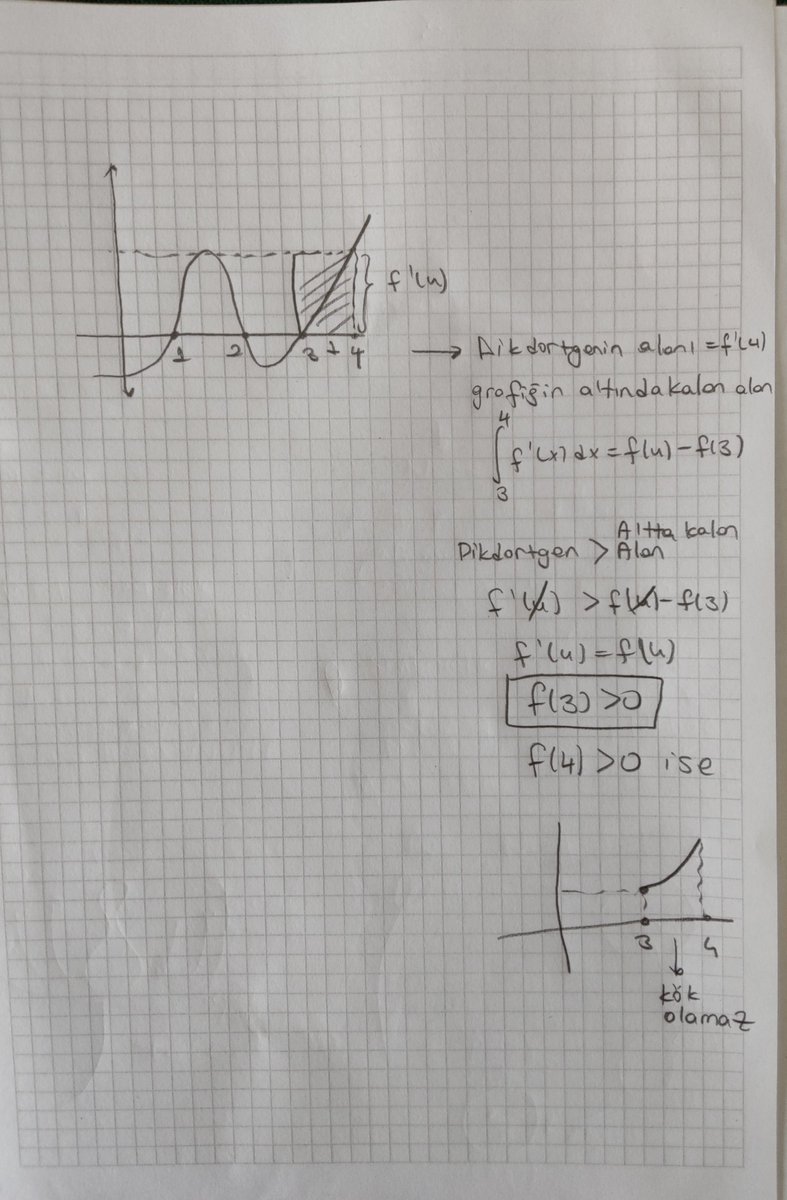 f'(4)
1 2 3 1 4
→ Dikdortgenin alanı = f'(4)
grafiğin altında kalan alan
∫₃⁴ f'(x) dx = f(4) - f(3)
Altta kalan
Dikdortgen > Alan
f'(4) > f(4) - f(3)
f'(4) = f(4)
f(3) > 0
f(4) > 0 ise
3 4
kök
olamaz